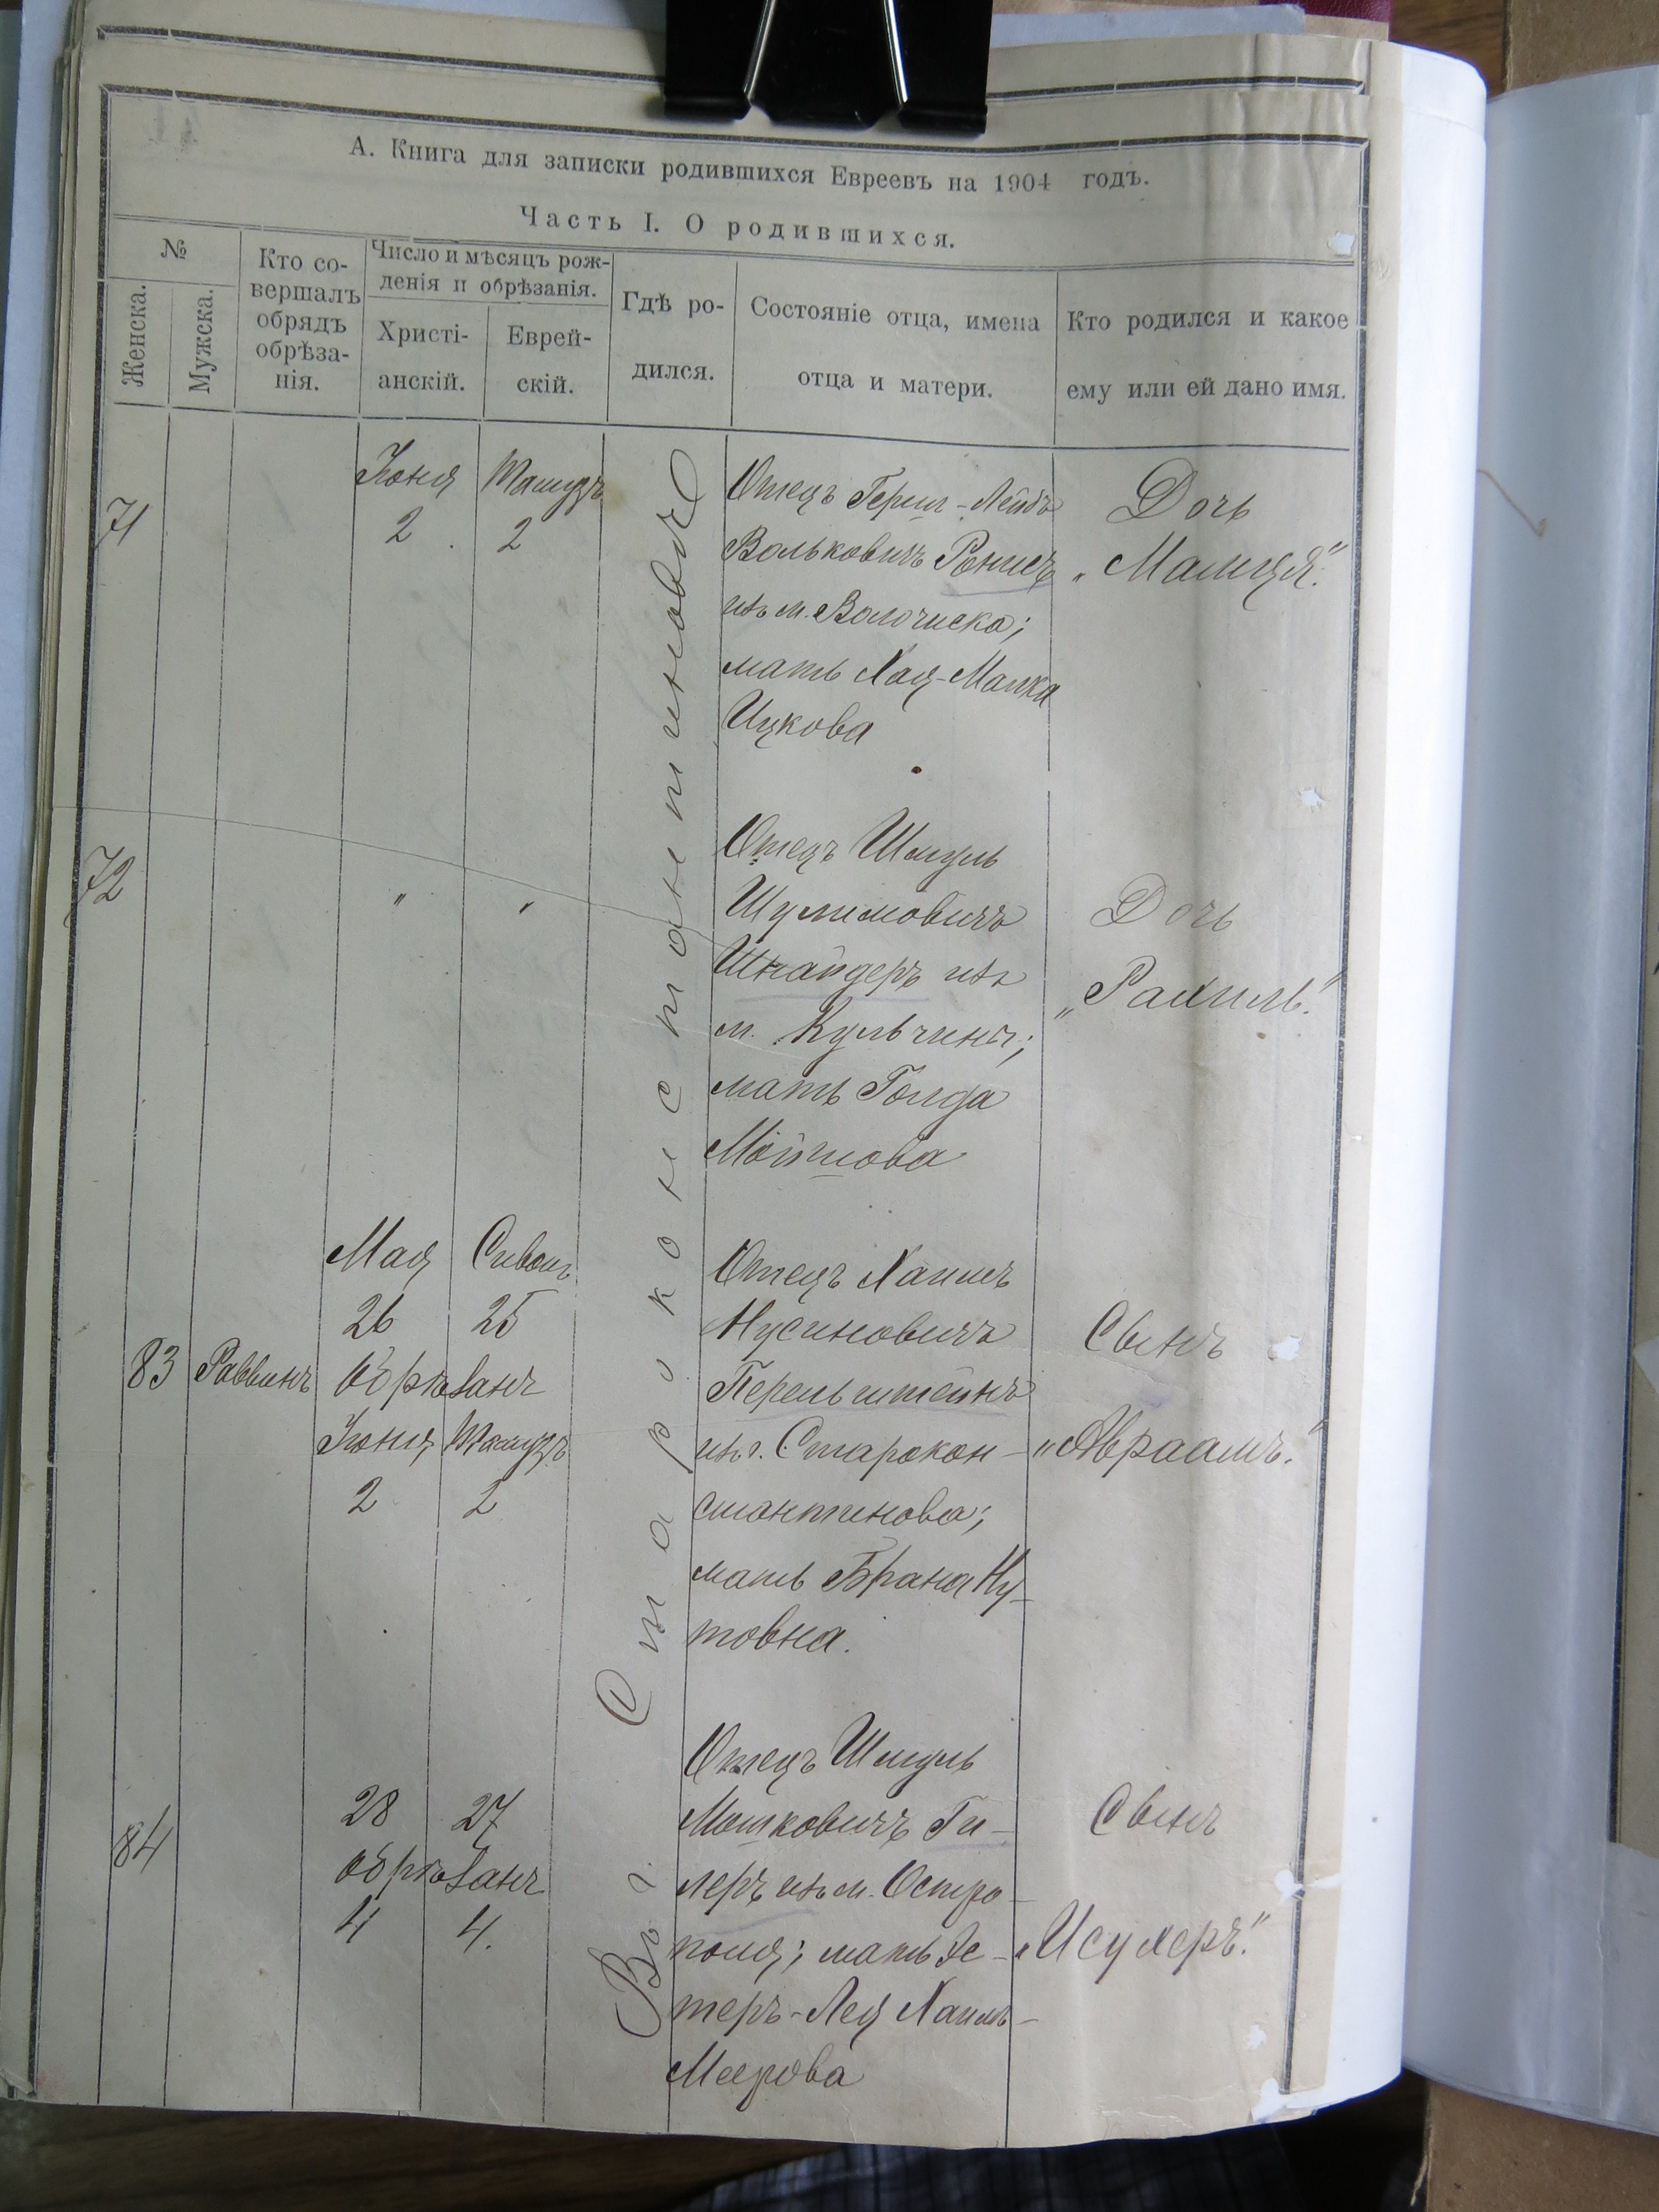 А. Книга для записки родившихся Евреевъ на 1904 годъ.
Часть I. О родившихся.
№
Женска.
Мужска.
Кто со-
вершалъ
обрядъ
обрѣза-
нія.
Число и мѣсяцъ рож-
денія и обрѣзанія.
Христі-
анскій.
Еврей-
скій.
Гдѣ ро-
дился.
Состояніе отца, имена
отца и матери.
Кто родился и какое
ему или ей дано имя.
Въ г. Староконстантиновѣ
71
Іюня Тамузъ
2 2
Отецъ Герш-Лейбъ
Вольковичъ
изъ м. Волочиска;
мать Хая-Малка
Ицкова
Дочь
„Маиця".
72
" "
Отецъ Шмуль
Шулимовичъ
Шнайдеръ изъ
м. Кульчины;
мать Голда
Мойшова
Дочь
„Рахиль".
83 Раввинъ
Мая Сиванъ
26 25
обрѣзанъ
Іюня Тамузъ
2 2
Отецъ Хаимъ
Нусиновичъ
Перельштейнъ
изъ г. Старокон-
стантинова;
мать Брана Ну-
товна.
Сынъ
„Авраамъ."
84
28 27
обрѣзанъ
4 4.
Отецъ Шмуль
Мошковичъ Ги-
леръ изъ м. Остро-
поля; мать Эс-
теръ-Лея Хаимъ-
Меерова
Сынъ
„Исухеръ."